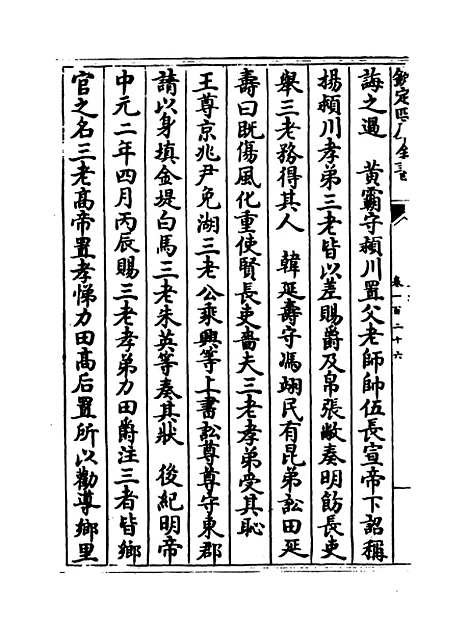 欽定四庫全書
卷一百二十六
誨之過　黃霸守潁川置父老師帥伍長宣帝下詔稱
揚潁川孝弟三老皆以差賜爵及帛張敞奏明飭長吏
舉三老務得其人　韓延壽守馮翊民有昆弟訟田延
壽曰既傷風化重使賢長吏嗇夫三老孝弟受其恥
王尊京兆尹免湖三老公乘興等上書訟尊尊守東郡
請以身填金堤白馬三老朱英等奏其狀　後紀明帝
中元二年四月丙辰賜三老孝弟力田爵注三者皆鄉
官之名三老高帝置孝悌力田高后置所以勸導鄉里